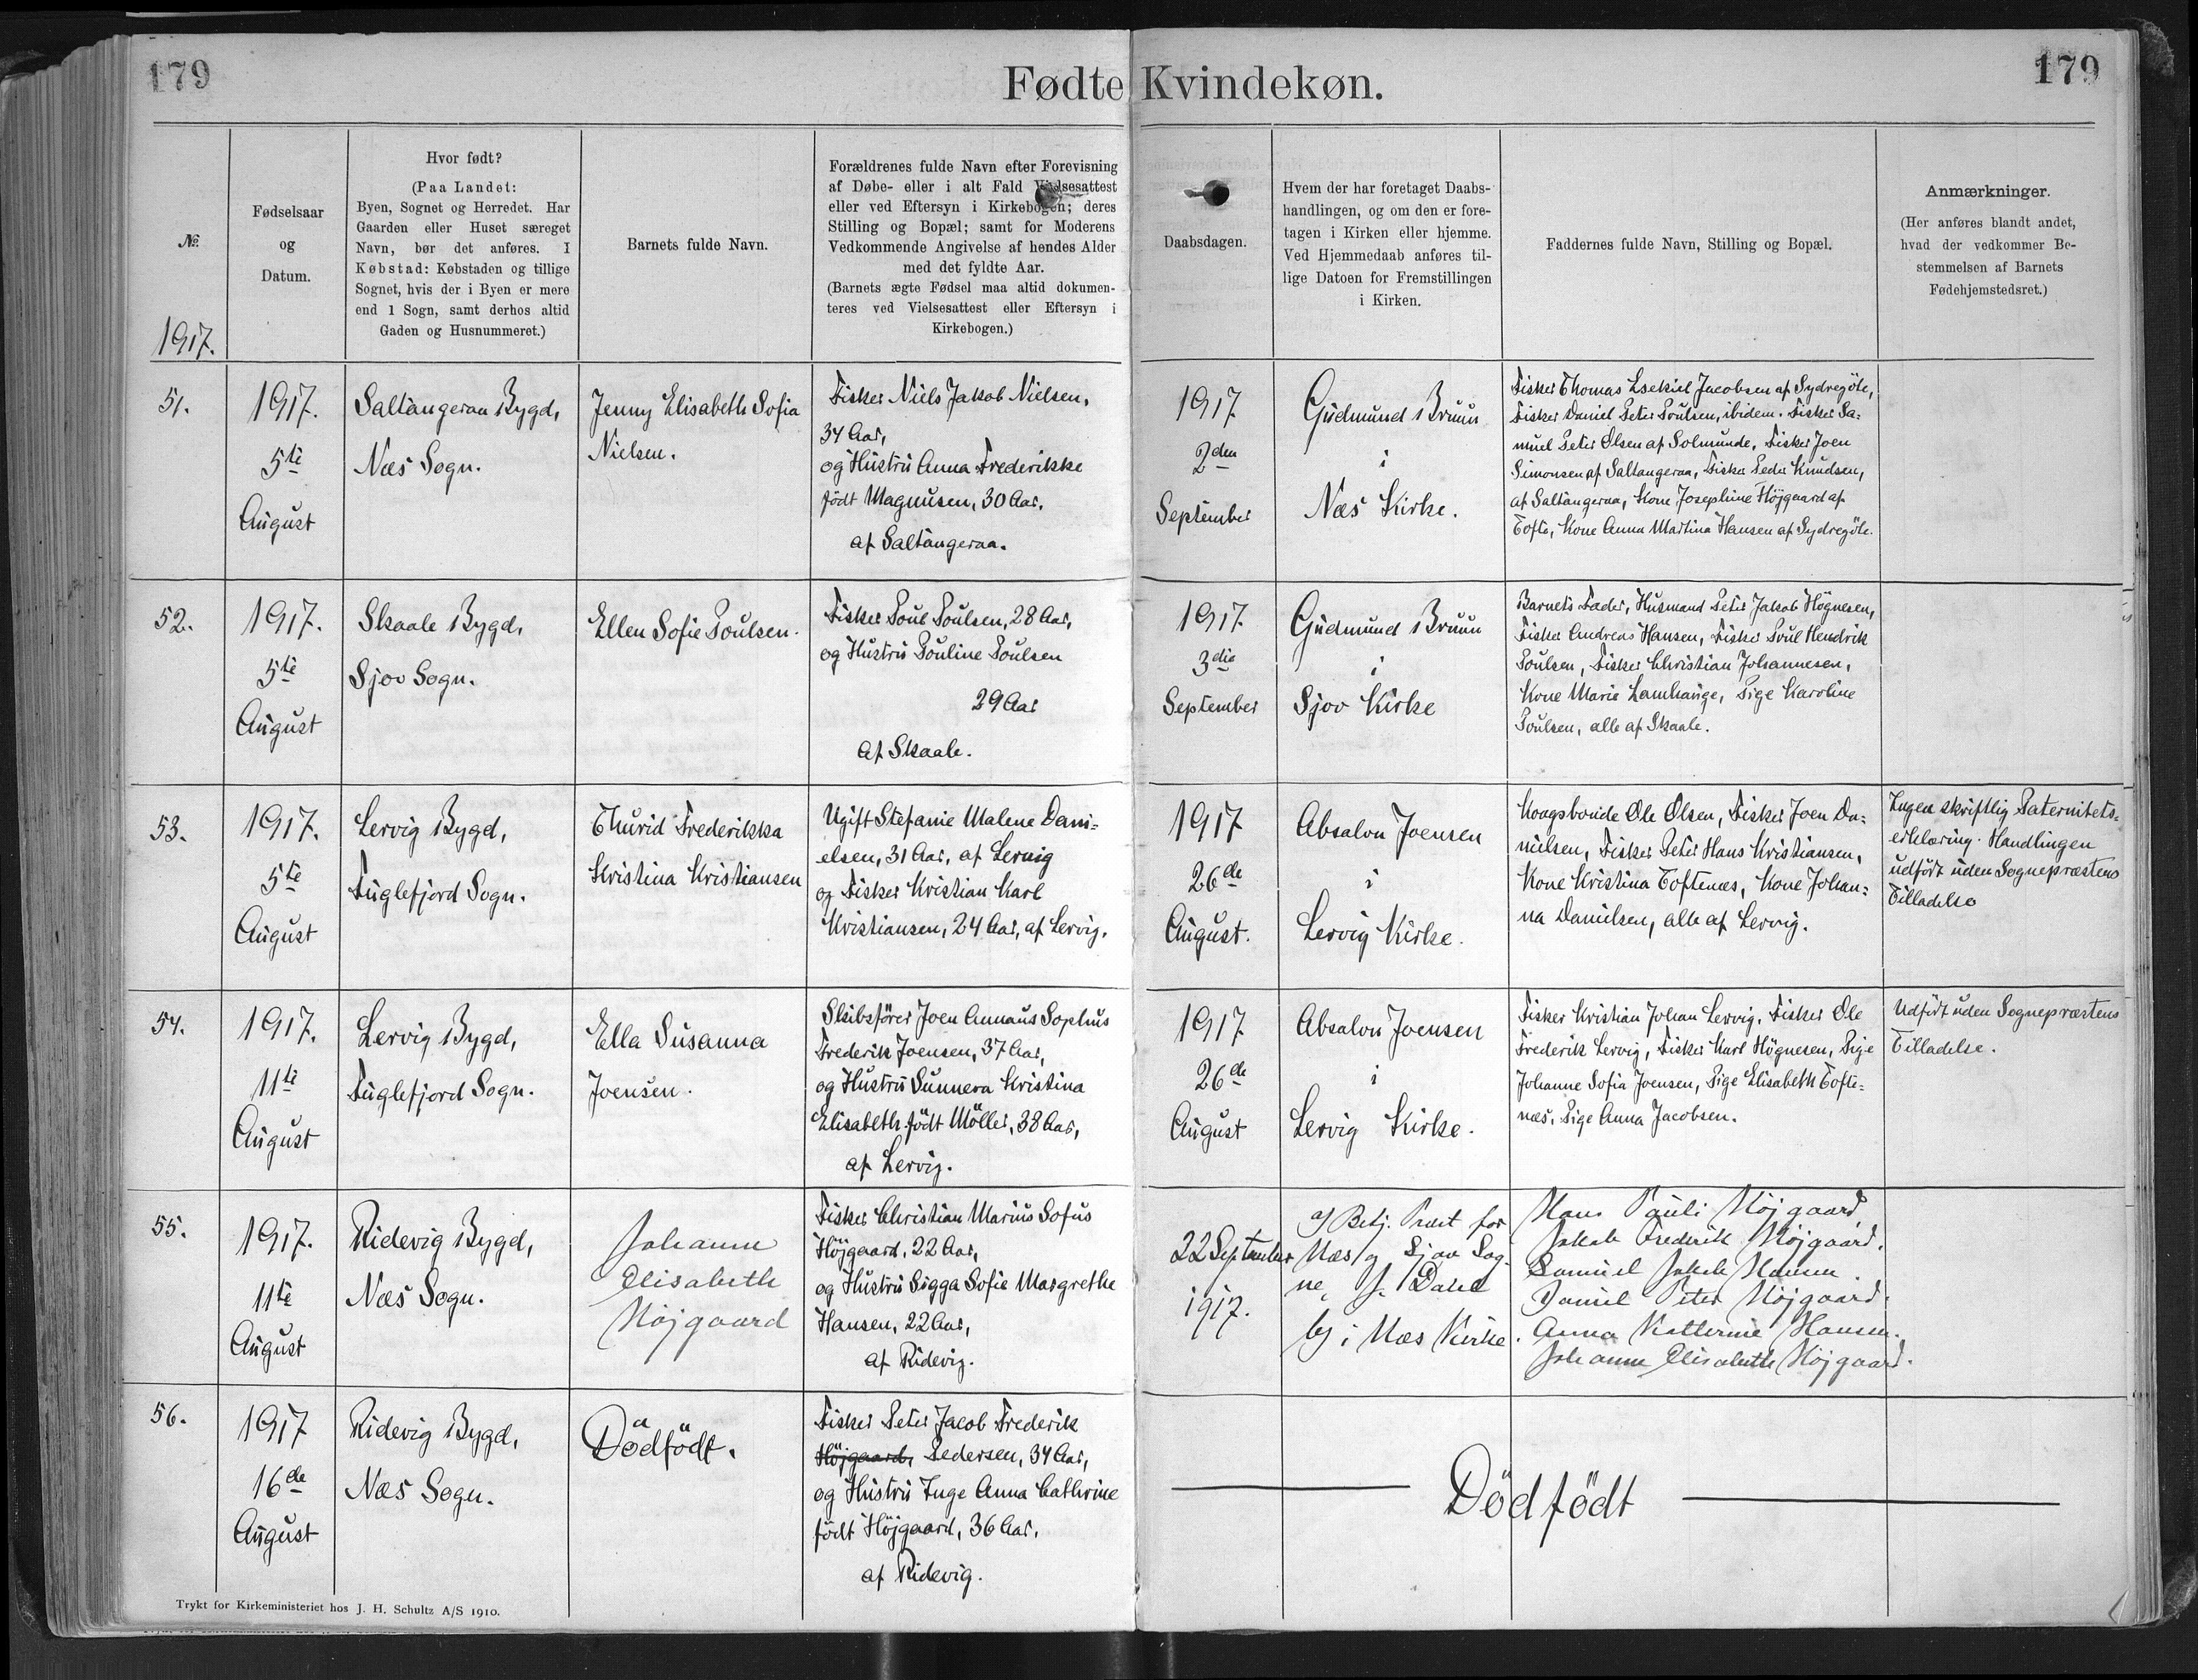 179
179
Fødte Kvindekøn.
№
1917.
Fødselsaar
og
Datum.
Hvor født?
(Paa Landet:
Byen, Sognet og Herredet. Har
Gaarden eller Huset særeget
Navn, bør det anføres. I
Købstad: Købstaden og tillige
Sognet, hvis der i Byen er mere
end 1 Sogn, samt derhos altid
Gaden og Husnummeret.)
Barnets fulde Navn.
Forældrenes fulde Navn efter Forevisning
af Døbe- eller i alt Fald Vielsesattest
eller ved Eftersyn i Kirkebogen; deres
Stilling og Bopæl; samt for Moderens
Vedkommende Angivelse af hendes Alder
med det fyldte Aar.
(Barnets ægte Fødsel maa altid dokumen-
teres ved Vielsesattest eller Eftersyn i
Kirkebogen.)
Daabsdagen.
Hvem der har foretaget Daabs-
handlingen, og om den er fore-
tagen i Kirken eller hjemme.
Ved Hjemmedaab anføres til-
lige Datoen for Fremstillingen
i Kirken.
Faddernes fulde Navn, Stilling og Bopæl.
Anmærkninger.
(Her anføres blandt andet,
hvad der vedkommer Be-
stemmelsen af Barnets
Fødehjemstedsret.)
51.
1917.
5te
August
Saltangeraa Bygd,
Næs Sogn.
Jenny Elisabeth Sofia
Nielsen.
Fisker Niels Jakob Nielsen,
34 Aar,
og Hustru Anna Frederikke
født Magnusen, 30 Aar,
af Saltangeraa.
1917
2den
September
Gudmund Bruun
i
Næs Kirke.
Fisker Thomas Esekiel Jacobsen af Sydregöte,
Fisker Daniel Peter Poulsen, ibidem. Fisker Sa=
muel Peter Olsen af Solmunde, Fisker Joen
Simonsen af Saltangeraa, Fisker Peder Knudsen,
af Saltangeraa, Kone Josephine Höjgaard af
Tofte, Kone Anna Martina Hansen af Sydregöte.
52.
1917.
5te
August
Skaale Bygd,
Sjov Sogn.
Ellen Sofie Poulsen.
Fisker Poul Poulsen, 28 Aar,
og Hustru Pouline Poulsen
29 Aar
af Skaale.
1917
3die
September
Gudmund Bruun
i
Sjov Kirke
Barnets Fader, Husmand Peter Jakob Högnesen,
Fisker Andreas Hansen, Fisker Poul Hendrik
Poulsen, Fisker Christian Johannesen,
Kone Marie Lamhauge, Pige Karoline
Poulsen, alle af Skaale.
53.
1917.
5te
August
Lervig Bygd,
Fuglefjord Sogn.
Thurid Frederikka
Kristina Kristiansen
Ugift Stefanie Malene Dani=
elsen, 31 Aar, af Lervig
og Fisker Kristian Karl
Kristiansen, 24 Aar, af Lervig.
1917
26de
August.
Absalon Joensen
i
Lervig Kirke.
Kongsbonde Ole Olsen, Fisker Joen Da=
nielsen, Fisker Peter Hans Kristiansen,
Kone Kristina Toftenæs, Kone Johan=
na Danielsen, alle af Lervig.
Ingen skriftlig Paternitets=
erklæring. Handlingen
udført uden Sognepræstens
Tilladelse
54.
1917.
11te
August
Lervig Bygd,
Fuglefjord Sogn.
Ella Susanna
Joensen.
Skibsfører Joen Annaus Sophus
Frederik Joensen, 37 Aar,
og Hustru Sunneva Kristina
Elisabeth født Möller, 38 Aar,
af Lervig.
1917
26de
August
Absalon Joensen
i
Lervig Kirke.
Fisker Kristian Johan Lervig, Fisker Ole
Frederik Lervig, Fisker Karl Högnesen, Pige
Johanne Sofia Joensen, Pige Elisabeth Tofte=
næs, Pige Anna Jacobsen.
Udført uden Sognepræstens
Tilladelse.
55.
1917.
11te
August
Ridevig Bygd,
Næs Sogn.
Johanne
Elisabeth
Højgaard
Fisker Christian Marius Sofus
Höjgaard, 22 Aar,
og Hustru Sigga Sofie Margrethe
Hansen, 22 Aar,
af Ridevig.
22 September
1917.
a) Betj. Præst for
Næs og Sjov Sog-
ne, J. Dahl
b) i Næs Kirke.
Hans Pauli Højgaard,
Jakob Frederik Højgaard.
Samuel Jakob Hansen.
Daniel Peter Højgaard.
Anna Katterine Hansen.
Johanne Elisabeth Højgaard.
56.
1917
16de
August
Ridevig Bygd,
Næs Sogn.
Dödfödt.
Fisker Peter Jacob Frederik
Höjgaard, Pedersen, 34 Aar,
og Hustru Inge Anna Cathrine
født Höjgaard, 36 Aar,
af Ridevig.
Dödfödt
Trykt for Kirkeministeriet hos J. H. Schultz A/S 1910.